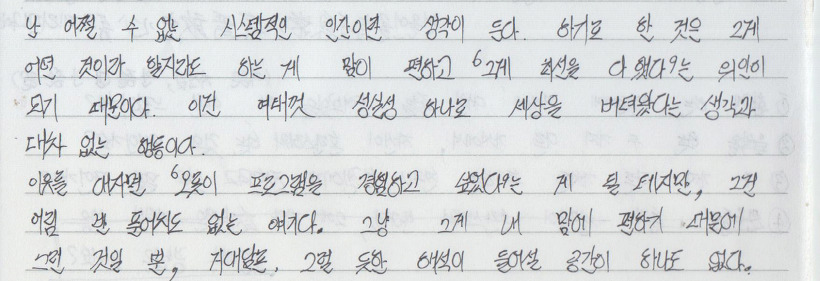 난 어쩔 수 없는 시스템적인 인간이란 생각이 든다. 하기로 한 것은 그게
어떤 것이라 할지라도 하는 게 맘이 편하고 '그게 최선을 다 했다'는 위안이
되기 때문이다. 이건 여태껏 성실성 하나로 세상을 버텨왔다는 생각과
대차 없는 행동이다.
이유를 대자면 '오롯이 프로그램을 경험하고 싶었다'는 게 될 테지만, 그건
어림 반 푼어치도 없는 얘기다. 그냥 그게 내 맘에 편하기 때문에
그런 것일 뿐, 지대얇은, 그럴 듯한 해석이 들어설 공간이 하나도 없다.